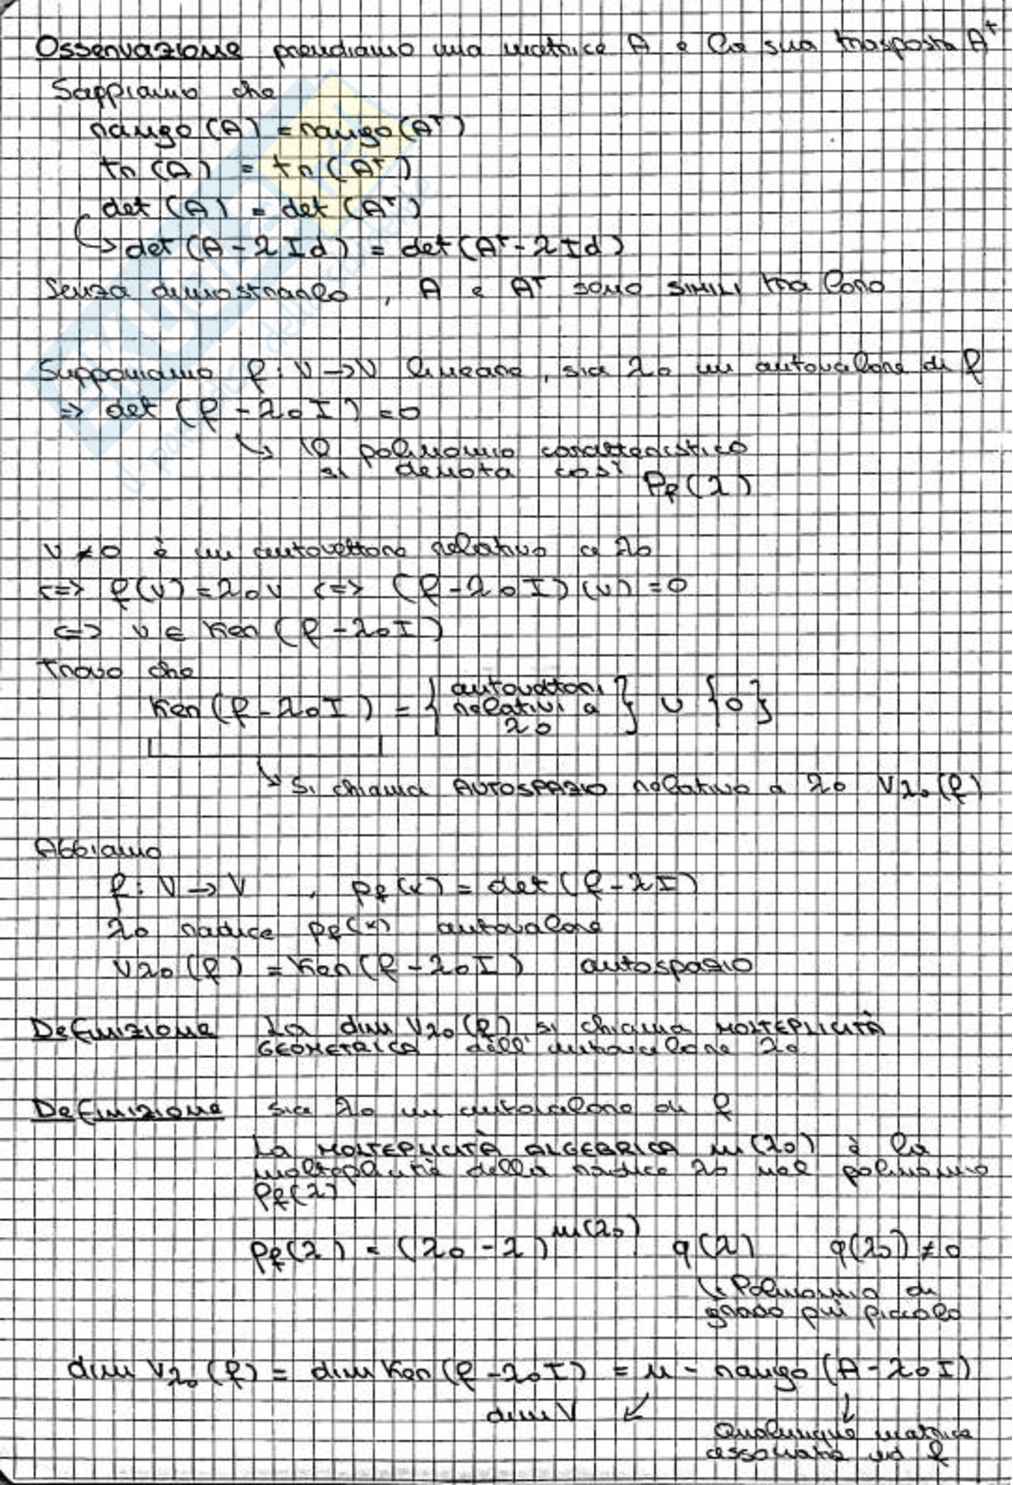 Osservazione prendiamo una matrice A e la sua trasposta Aᵗ
Sappiamo che
rango (A) = rango (Aᵗ)
tr (A) = tr (Aᵗ)
det (A) = det (Aᵗ)
↳ det (A - λ Id) = det (Aᵗ - λ Id)
Senza dimostrarlo, A e Aᵗ sono SIMILI tra loro
Supponiamo f : V → V lineare, sia λ₀ un autovalore di f
⇒ det (f - λ₀ I) = 0
↳ il polinomio caratteristico
si denota così
Pf (λ)
v ≠ 0 è un autovettore relativo a λ₀
⇔ f(v) = λ₀v ⇔ (f - λ₀ I) (v) = 0
⇔ v ∈ Ker (f - λ₀I)
Trovo che
Ker (f - λ₀I) = { autovettori relativi a λ₀ } ∪ {0}
↳ Si chiama AUTOSPAZIO relativo a λ₀ Vλ₀ (f)
Abbiamo
f : V → V , pf(x) = det (f - λI)
λ₀ radice pf(x) autovalore
Vλ₀ (f) = Ker (f - λ₀I) autospazio
Definizione La dim Vλ₀ (f) si chiama MOLTEPLICITÀ
GEOMETRICA dell'autovalore λ₀
Definizione sia λ₀ un autovalore di f
La MOLTEPLICITÀ ALGEBRICA m(λ₀) è la
molteplicità della radice λ₀ nel polinomio
Pf(λ)
Pf(λ) = (λ₀ - λ)^m(λ₀) q(λ) q(λ₀) ≠ 0
↳ Polinomio di
grado più piccolo
dim Vλ₀ (f) = dim Ker (f - λ₀I) = n - rango (A - λ₀I)
dim V ↙ ↓
Qualunque matrice
associata ad f